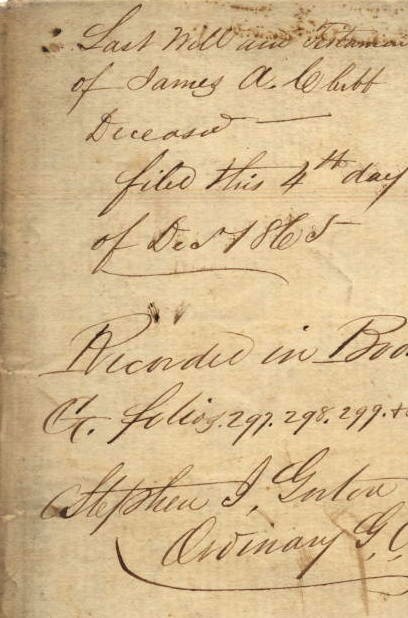 Last Will and Testamen
of James A. Clubb
Deceased —
filed this 4th day
of Decr 1865
Recorded in Boo
G. folios 297. 298. 299. +
Stephen J. Gorton
Ordinary G. C